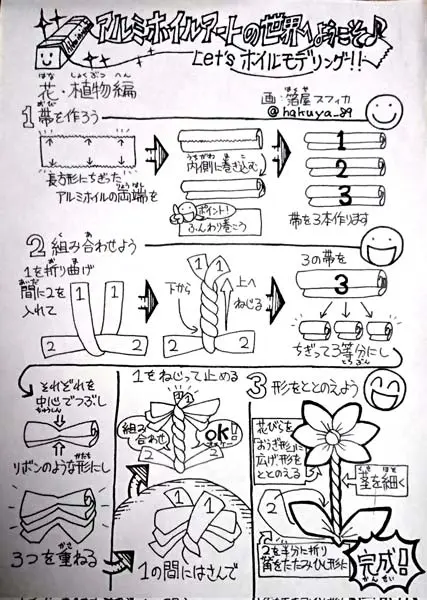 アルミホイルアートの世界へようこそ♪
Let's ホイルモデリング!!
花・植物編
はな しょくぶつ へん
画 箔屋スフィカ
@hakuya_89
1 帯を作ろう
長方形にちぎった
アルミホイルの両端を
内側に巻き込む
ポイント!
ふんわり巻こう
1
2
3
帯を3本作ります
2 組み合わせよう
1を折り曲げ
間に2を
入れて
1 1
2 2
下から
上へ
ねじる
1 1
2 2
3の帯を
3
ちぎって3等分にし
それぞれを
中心でつぶし
リボンのような形にし
3つを重ねる
1をねじって止める
1 1
組み合わせ
OK!
2 2
1 1
2 2
1の間にはさんで
3 形をととのえよう
花びらを
おうぎ形に
広げ、形を
ととのえる
茎を細く
2を半分に折り
葉をたたみひし形に
完成!
かんせい